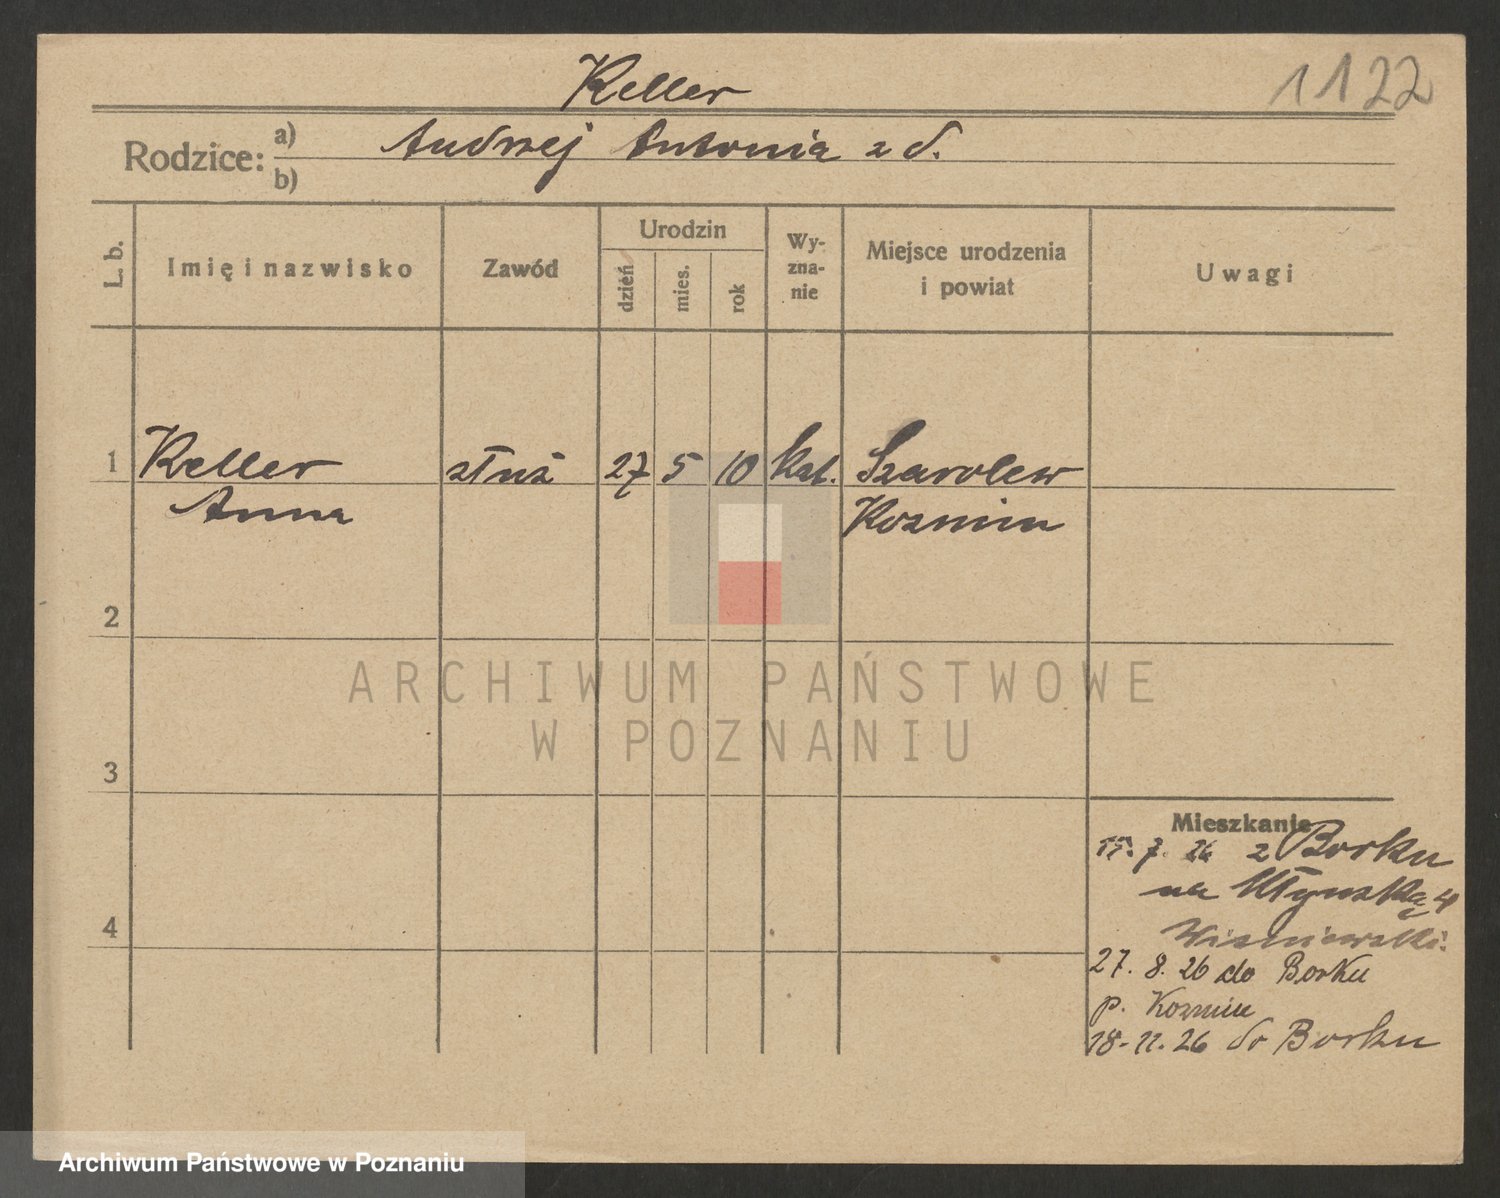 Keller
1122
Rodzice: a) Andrzej Antonia z d.
b)
L. b.
Imię i nazwisko
Zawód
Urodzin
dzień
mies.
rok
Wy-
zna-
nie
Miejsce urodzenia
i powiat
Uwagi
1 Keller służ 27 5 10 kat. Szarolew
Anna Kozmin
2
3
4
ARCHIWUM PAŃSTWOWE
W POZNANIU
Mieszkanie
15. 7. 26 z Borku
na Młyńską 4
Wiśniewski.
27. 8. 26 do Borku
p. Kozmin
18-11. 26 do Borku
Archiwum Państwowe w Poznaniu